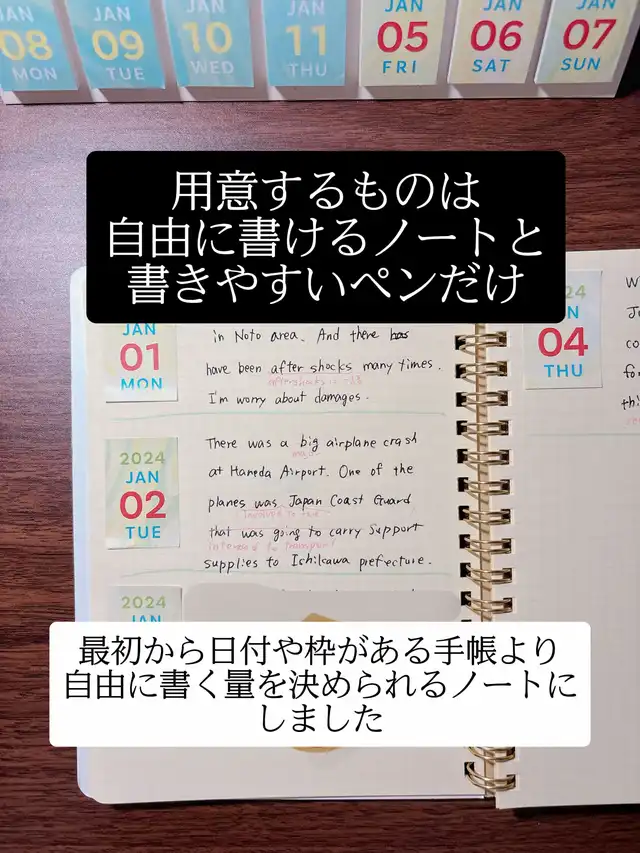 JAN
08
MON
JAN
09
TUE
JAN
10
WED
JAN
11
THU
JAN
05
FRI
JAN
06
SAT
JAN
07
SUN
用意するものは
自由に書けるノートと
書きやすいペンだけ
JAN
01
MON
in Noto area. And there has
have been after shocks many times.
I'm worry about damages.
2024
JAN
02
TUE
There was a big airplane crash
at Haneda Airport. One of the
planes was Japan Coast Guard
that was going to carry support
supplies to Ichikawa prefecture.
2024
JAN
24
N
04
THU
W
J
co
fo
thi
最初から日付や枠がある手帳より
自由に書く量を決められるノートに
しました